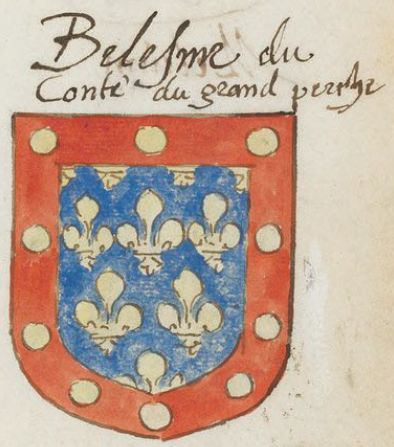 Belesme du
Conté du grand perche